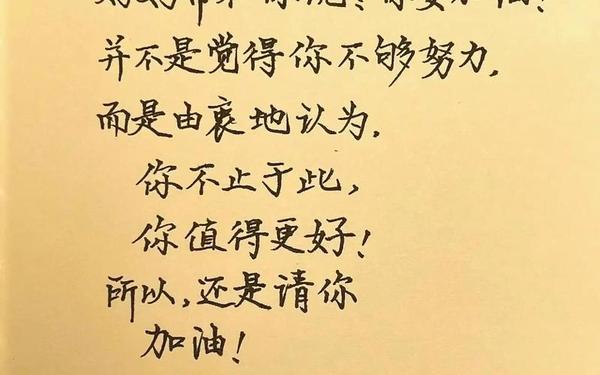 你要加油!
并不是觉得你不够努力,
而是由衷地认为,
你不止于此,
你值得更好!
所以,还是请你
加油!